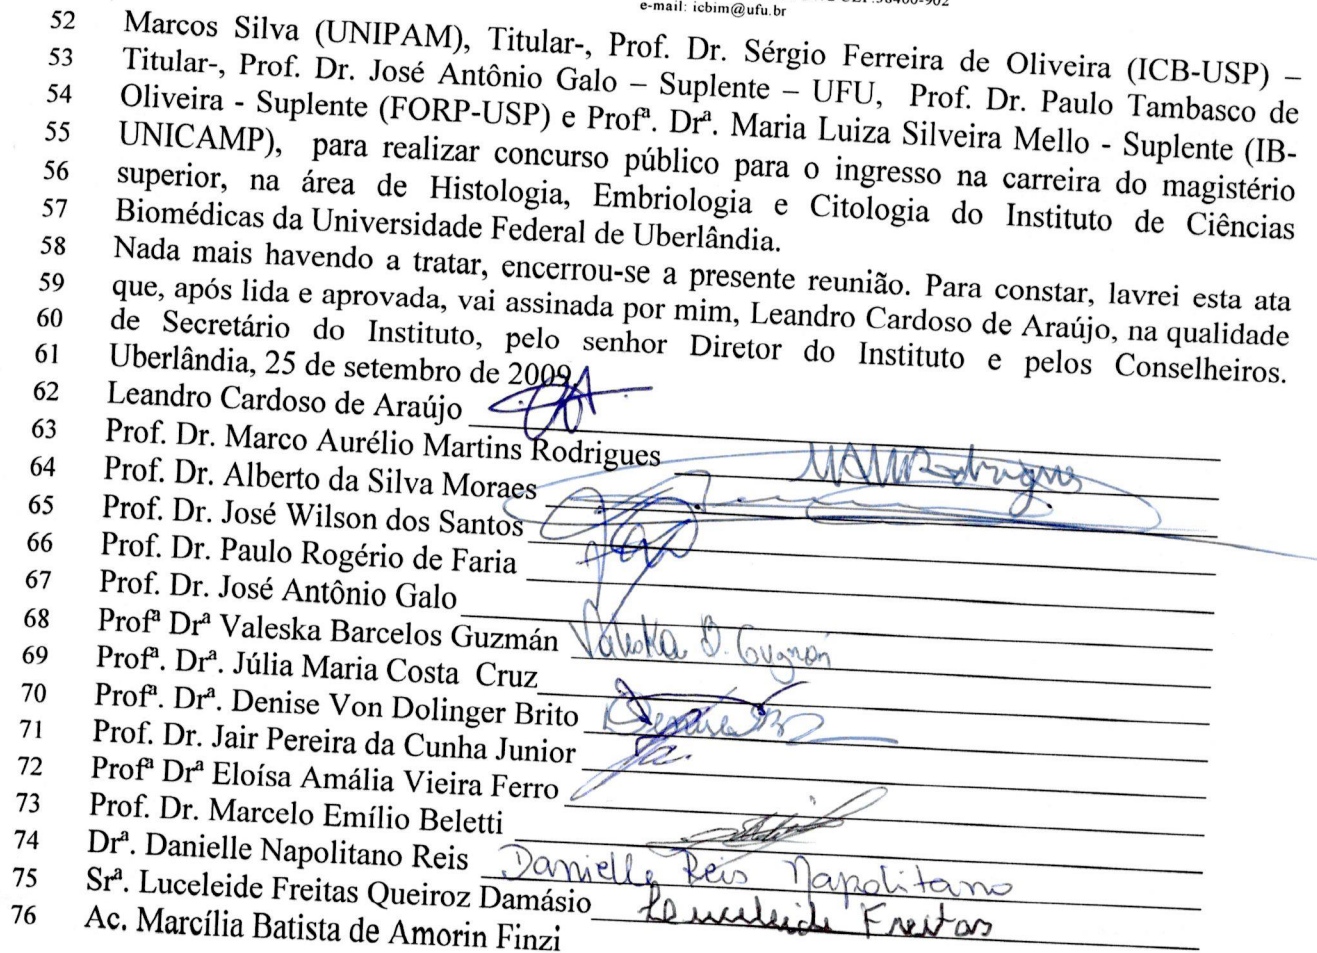 e-mail: icbim@ufu.br
52 Marcos Silva (UNIPAM), Titular-, Prof. Dr. Sérgio Ferreira de Oliveira (ICB-USP) –
53 Titular-, Prof. Dr. José Antônio Galo – Suplente – UFU, Prof. Dr. Paulo Tambasco de
54 Oliveira - Suplente (FORP-USP) e Profª. Drª. Maria Luiza Silveira Mello - Suplente (IB-
55 UNICAMP), para realizar concurso público para o ingresso na carreira do magistério
56 superior, na área de Histologia, Embriologia e Citologia do Instituto de Ciências
57 Biomédicas da Universidade Federal de Uberlândia.
58 Nada mais havendo a tratar, encerrou-se a presente reunião. Para constar, lavrei esta ata
59 que, após lida e aprovada, vai assinada por mim, Leandro Cardoso de Araújo, na qualidade
60 de Secretário do Instituto, pelo senhor Diretor do Instituto e pelos Conselheiros.
61 Uberlândia, 25 de setembro de 2009.
62 Leandro Cardoso de Araújo
63 Prof. Dr. Marco Aurélio Martins Rodrigues MAMRodrigues
64 Prof. Dr. Alberto da Silva Moraes
65 Prof. Dr. José Wilson dos Santos
66 Prof. Dr. Paulo Rogério de Faria
67 Prof. Dr. José Antônio Galo
68 Profª Drª Valeska Barcelos Guzmán Valeska B. Guzmán
69 Profª. Drª. Júlia Maria Costa Cruz
70 Profª. Drª. Denise Von Dolinger Brito
71 Prof. Dr. Jair Pereira da Cunha Junior
72 Profª Drª Eloísa Amália Vieira Ferro
73 Prof. Dr. Marcelo Emílio Beletti
74 Drª. Danielle Napolitano Reis Danielle Reis Napolitano
75 Srª. Luceleide Freitas Queiroz Damásio Luceleide Freitas
76 Ac. Marcília Batista de Amorin Finzi